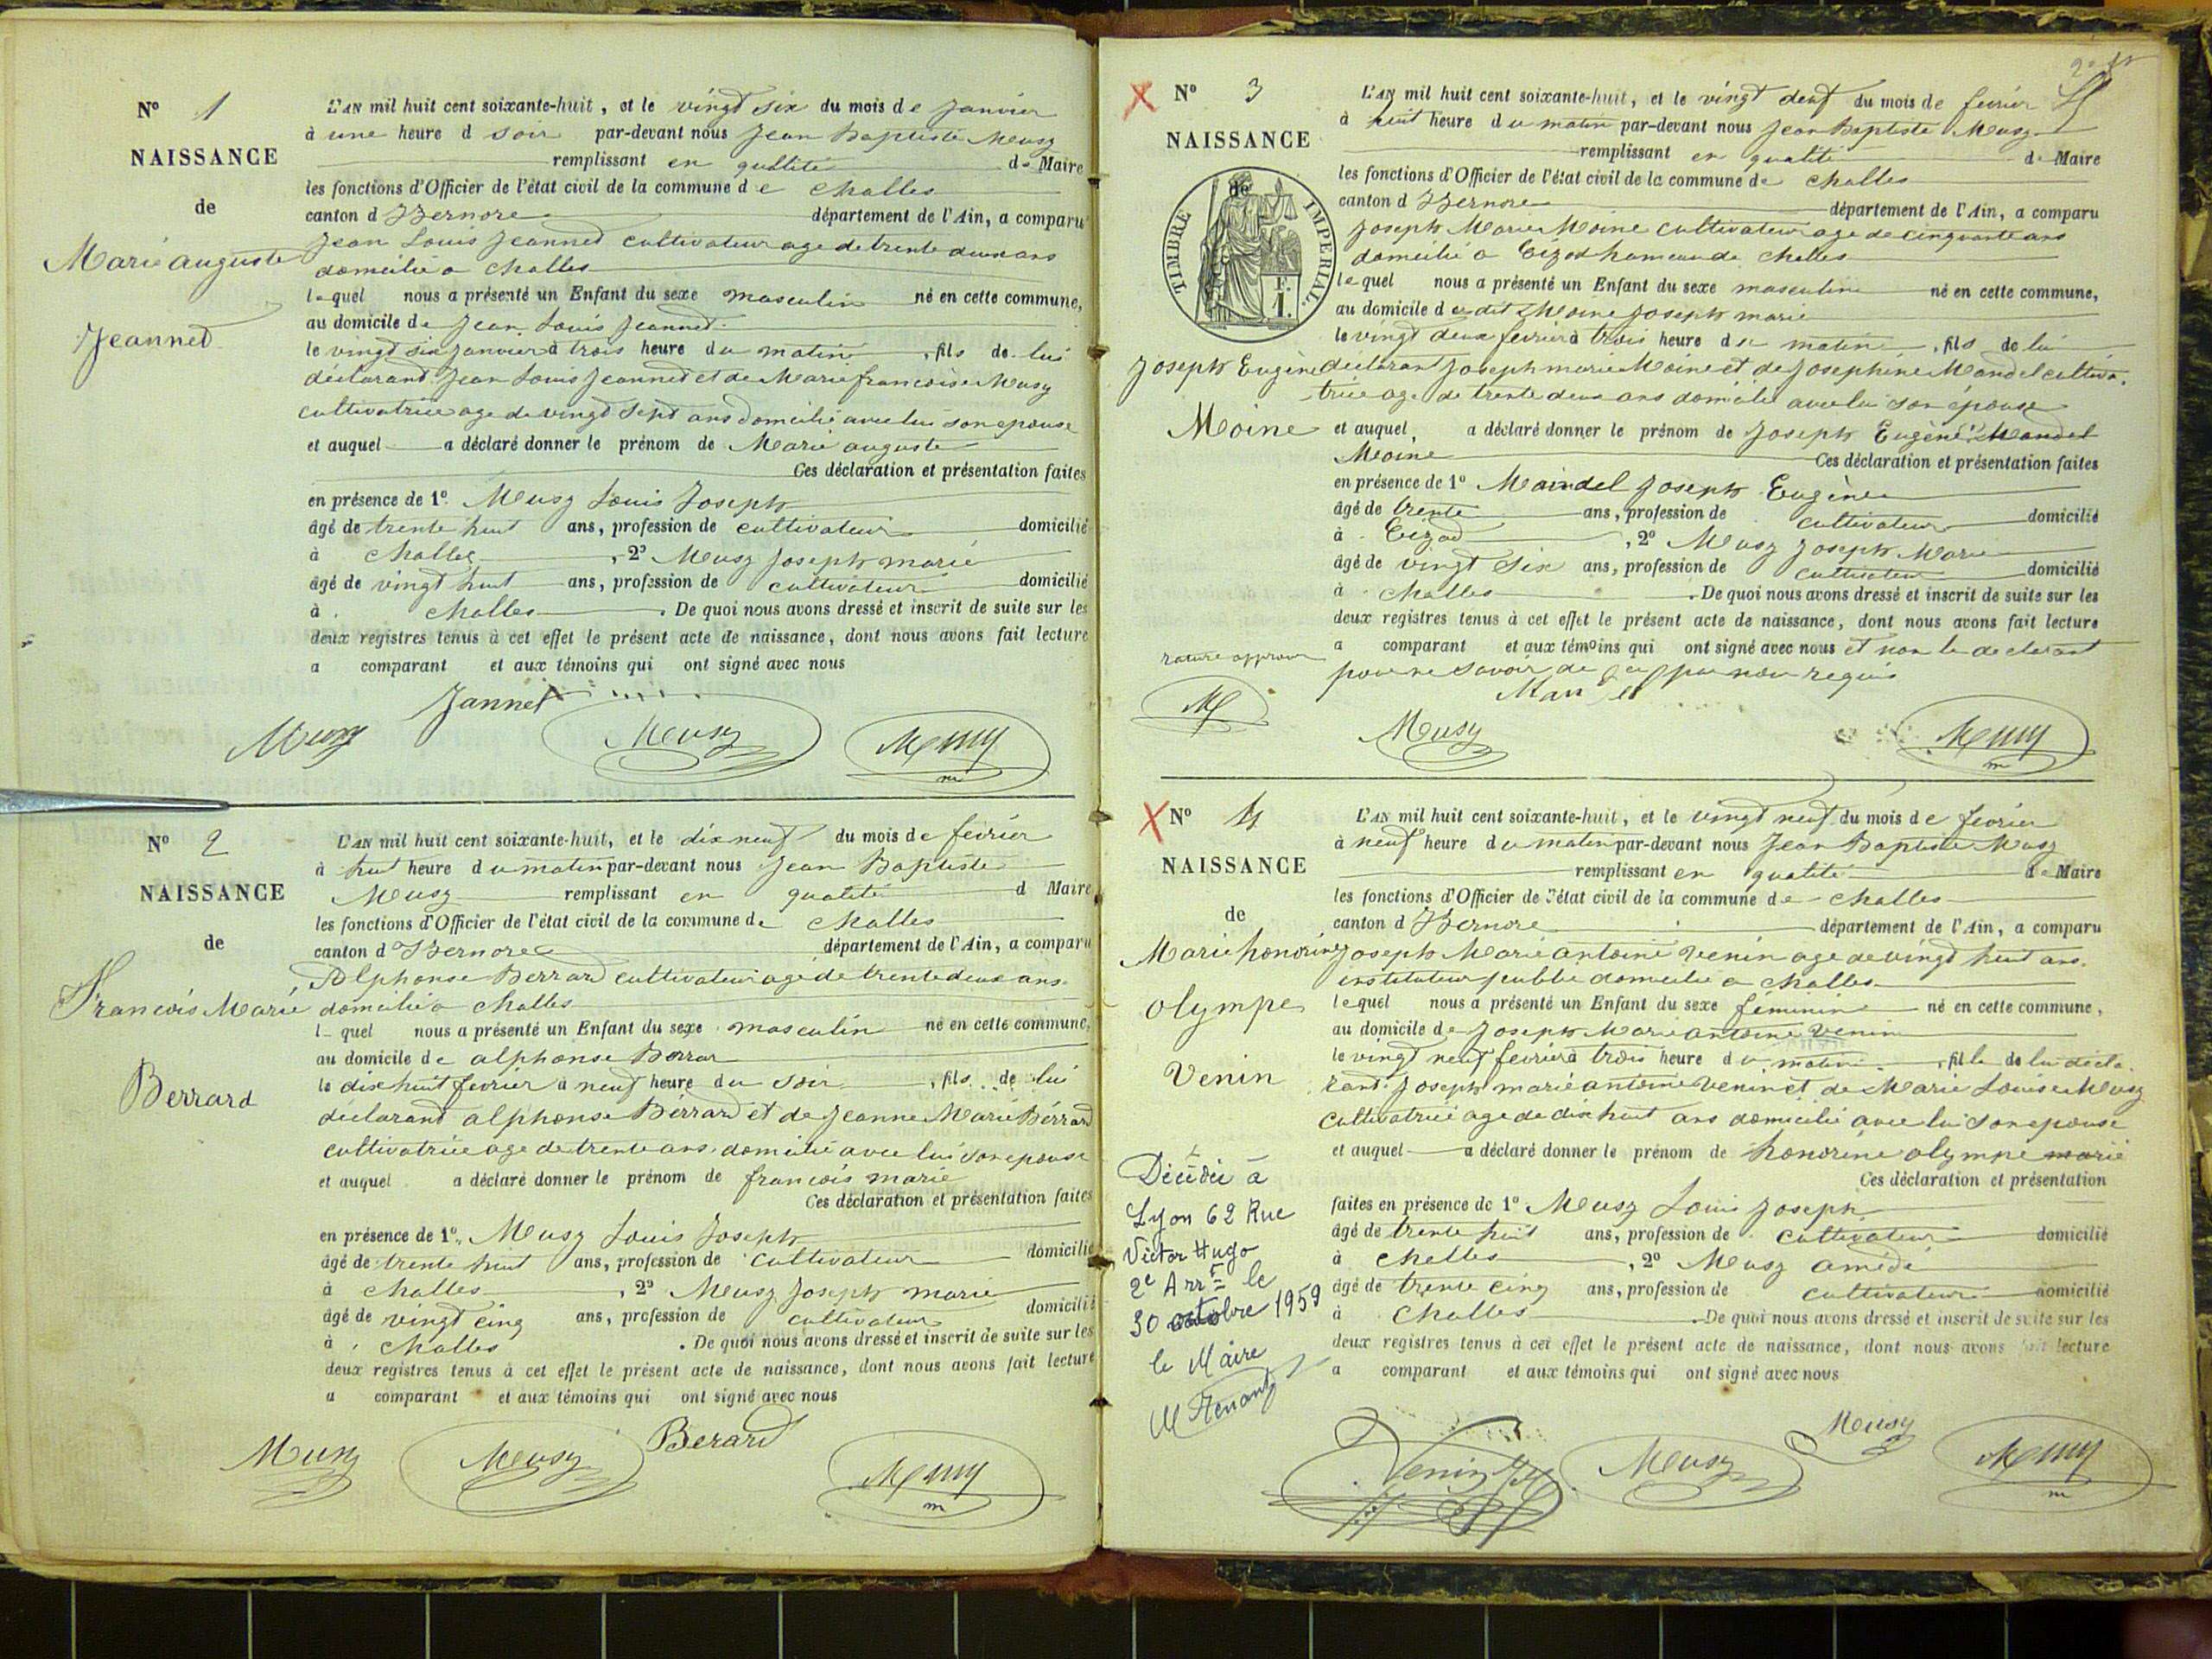 N° 1
NAISSANCE
de
Marie auguste
Jeannet
L'AN mil huit cent soixante-huit, et le vingt six du mois de janvier
à une heure d soir par-devant nous Jean Baptiste Meusy
remplissant en qualité de Maire
les fonctions d'Officier de l'état civil de la commune de Challes
canton d'Izernore département de l'Ain, a comparu
Jean Louis Jeannet cultivateur age de trente deux ans
domicilié a Challes
lequel nous a présenté un Enfant du sexe masculin né en cette commune,
au domicile de Jean Louis Jeannet
le vingt six janvier à trois heure du matin, fils de lui
déclarant Jean Louis Jeannet et de Marie francoise Meusy
cultivatrice age de vingt sept ans domicilié avec lui son epouse
et auquel a déclaré donner le prénom de Marie auguste
Ces déclaration et présentation faites
en présence de 1° Meusy Louis Joseph
âgé de trente huit ans, profession de cultivateur domicilié
à Challes, 2° Meusy Joseph marie
âgé de vingt huit ans, profession de cultivateur domicilié
à Challes. De quoi nous avons dressé et inscrit de suite sur les
deux registres tenus à cet effet le présent acte de naissance, dont nous avons fait lecture
a comparant et aux témoins qui ont signé avec nous
Jannet
Meusy Meusy Meusy
m
N° 2
NAISSANCE
de
Francois Marie
Berrard
L'AN mil huit cent soixante-huit, et le dix neuf du mois de fevrier
à huit heure du matin par-devant nous Jean Baptiste
Meusy remplissant en qualité d Maire
les fonctions d'Officier de l'état civil de la commune de Challes
canton d'Izernore département de l'Ain, a comparu
Alphonse Berrard cultivateur age de trente deux ans
domicilié a Challes
l quel nous a présenté un Enfant du sexe masculin né en cette commune,
au domicile de alphonse Berrar
le dix huit fevrier à neuf heure du soir, fils de lui
déclarant alphonse Bérrard et de Jeanne Marie Bérrard
cultivatrice age de trente ans domicilié avec lui son epouse
et auquel a déclaré donner le prénom de francois marie
Ces déclaration et présentation faites
en présence de 1° Meusy Louis Joseph
âgé de trente huit ans, profession de cultivateur domicilié
à Challes, 2° Meusy Joseph marie
âgé de vingt cinq ans, profession de cultivateur domicilié
à Challes. De quoi nous avons dressé et inscrit de suite sur les
deux registres tenus à cet effet le présent acte de naissance, dont nous avons fait lecture
a comparant et aux témoins qui ont signé avec nous
Meusy Meusy Berard Meusy
m
N° 3
NAISSANCE
de
TIMBRE IMPERIAL
F.
1.
Joseph Eugène
Moine
L'AN mil huit cent soixante-huit, et le vingt deux du mois de fevrier
à huit heure du matin par-devant nous Jean Baptiste Meusy
remplissant en qualité de Maire
les fonctions d'Officier de l'état civil de la commune de Challes
canton d'Izernore département de l'Ain, a comparu
Joseph Marie Moine cultivateur age de cinquante ans
domicilié a Cizod hameau de Challes
lequel nous a présenté un Enfant du sexe masculin né en cette commune,
au domicile du dit Moine Joseph marie
le vingt deux fevrier à trois heure du matin, fils de lui
déclarant Joseph marie Moine et de Josephine Mandel cultiva-
trice age de trente deux ans domicilié avec lui son épouse
et auquel a déclaré donner le prénom de Joseph Eugène Mandel
Moine Ces déclaration et présentation faites
en présence de 1° Maindel Joseph Eugène
âgé de trente ans, profession de cultivateur domicilié
à Cizod, 2° Meusy Joseph Marie
âgé de vingt six ans, profession de cultivateur domicilié
à Challes. De quoi nous avons dressé et inscrit de suite sur les
deux registres tenus à cet effet le présent acte de naissance, dont nous avons fait lecture
a comparant et aux témoins qui ont signé avec nous et non le declarant
pour ne savoir de par nous requis
rature approuvé
M
Meusy Meusy
m
N° 4
NAISSANCE
de
Marie honorine
olympe
Venin
L'AN mil huit cent soixante-huit, et le vingt neuf du mois de fevrier
à neuf heure du matin par-devant nous Jean Baptiste Meusy
remplissant en qualité de Maire
les fonctions d'Officier de l'état civil de la commune de Challes
canton d'Izernore département de l'Ain, a comparu
Joseph Marie antoine Venin age de vingt huit ans
instituteur public domicilié a Challes
lequel nous a présenté un Enfant du sexe féminin né en cette commune,
au domicile de Joseph Marie antoine Venin
le vingt neuf fevrier à trois heure du matin, fille de lui décla-
rant Joseph marie antoine Venin et de Marie Louise Meusy
cultivatrice age de dix huit ans domicilié avec lui son epouse
et auquel a déclaré donner le prénom de honorine olympe marie
Ces déclaration et présentation
faites en présence de 1° Meusy Louis Joseph
âgé de trente huit ans, profession de cultivateur domicilié
à Challes, 2° Meusy amédé
âgé de trente cinq ans, profession de cultivateur domicilié
à Challes. De quoi nous avons dressé et inscrit de suite sur les
deux registres tenus à cet effet le présent acte de naissance, dont nous avons fait lecture
a comparant et aux témoins qui ont signé avec nous
Décédée à
Lyon 62 Rue
Victor Hugo
2e Arrt le
30 octobre 1959
le Maire
Venin Meusy Meusy Meusy
m